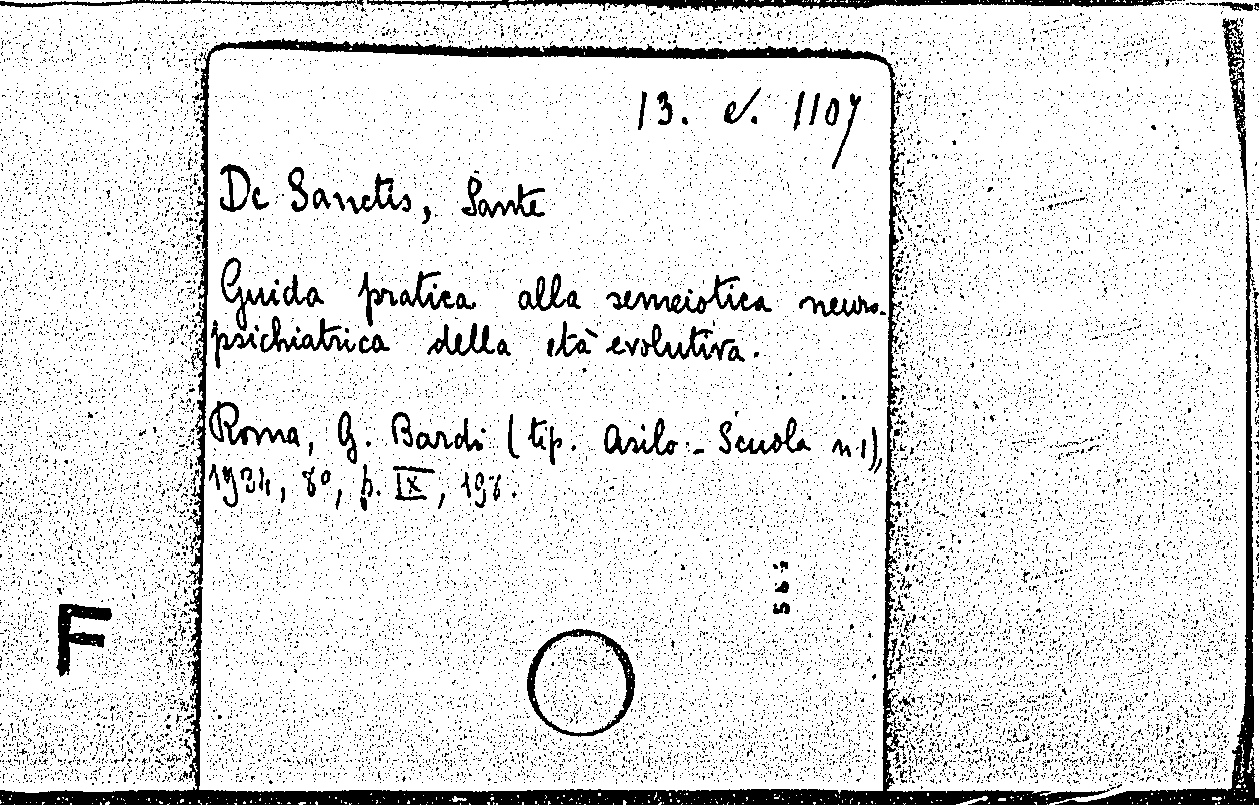 13. e. 1107
De Sanctis, Sante
Guida pratica alla semeiotica neuro-
psichiatrica della età evolutiva.
Roma, G. Bardi (tip. Asilo-Scuola n.1),
1934, 8º, p. IX, 198.
F